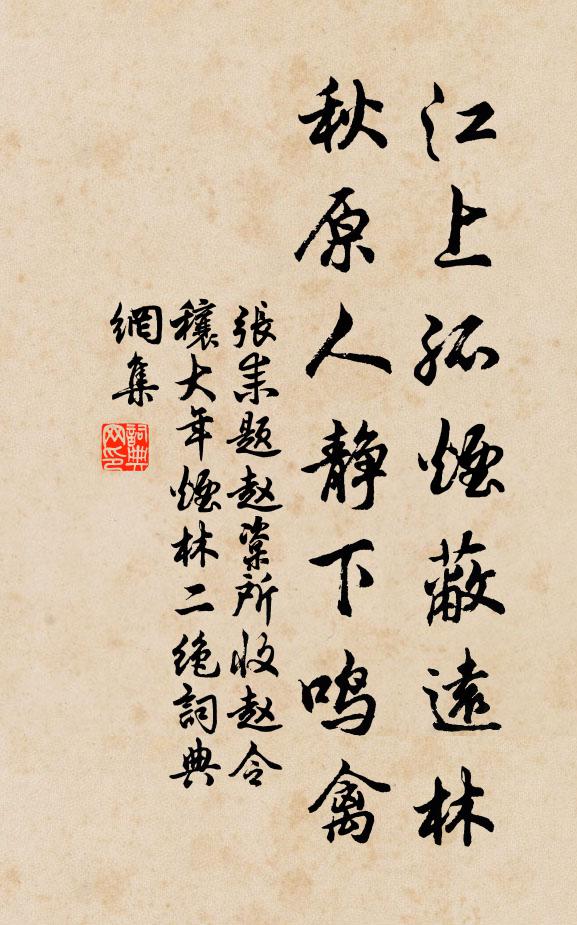 江上孤煙蔽遠林
秋原人静下鸣禽
張耒题赵所收赵令
穰大年煙林二绝詞典
網集
詞典
网印